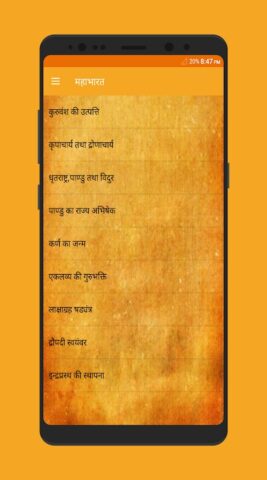 20% 8:47 PM
महाभारत
कुरुवंश की उत्पत्ति
कृपाचार्य तथा द्रोणाचार्य
धृतराष्ट्र,पाण्डु तथा विदुर
पाण्डु का राज्य अभिषेक
कर्ण का जन्म
एकलव्य की गुरुभक्ति
लाक्षाग्रह षड्यंत्र
द्रौपदी स्वयंबर
इन्द्रप्रस्थ की स्थापना